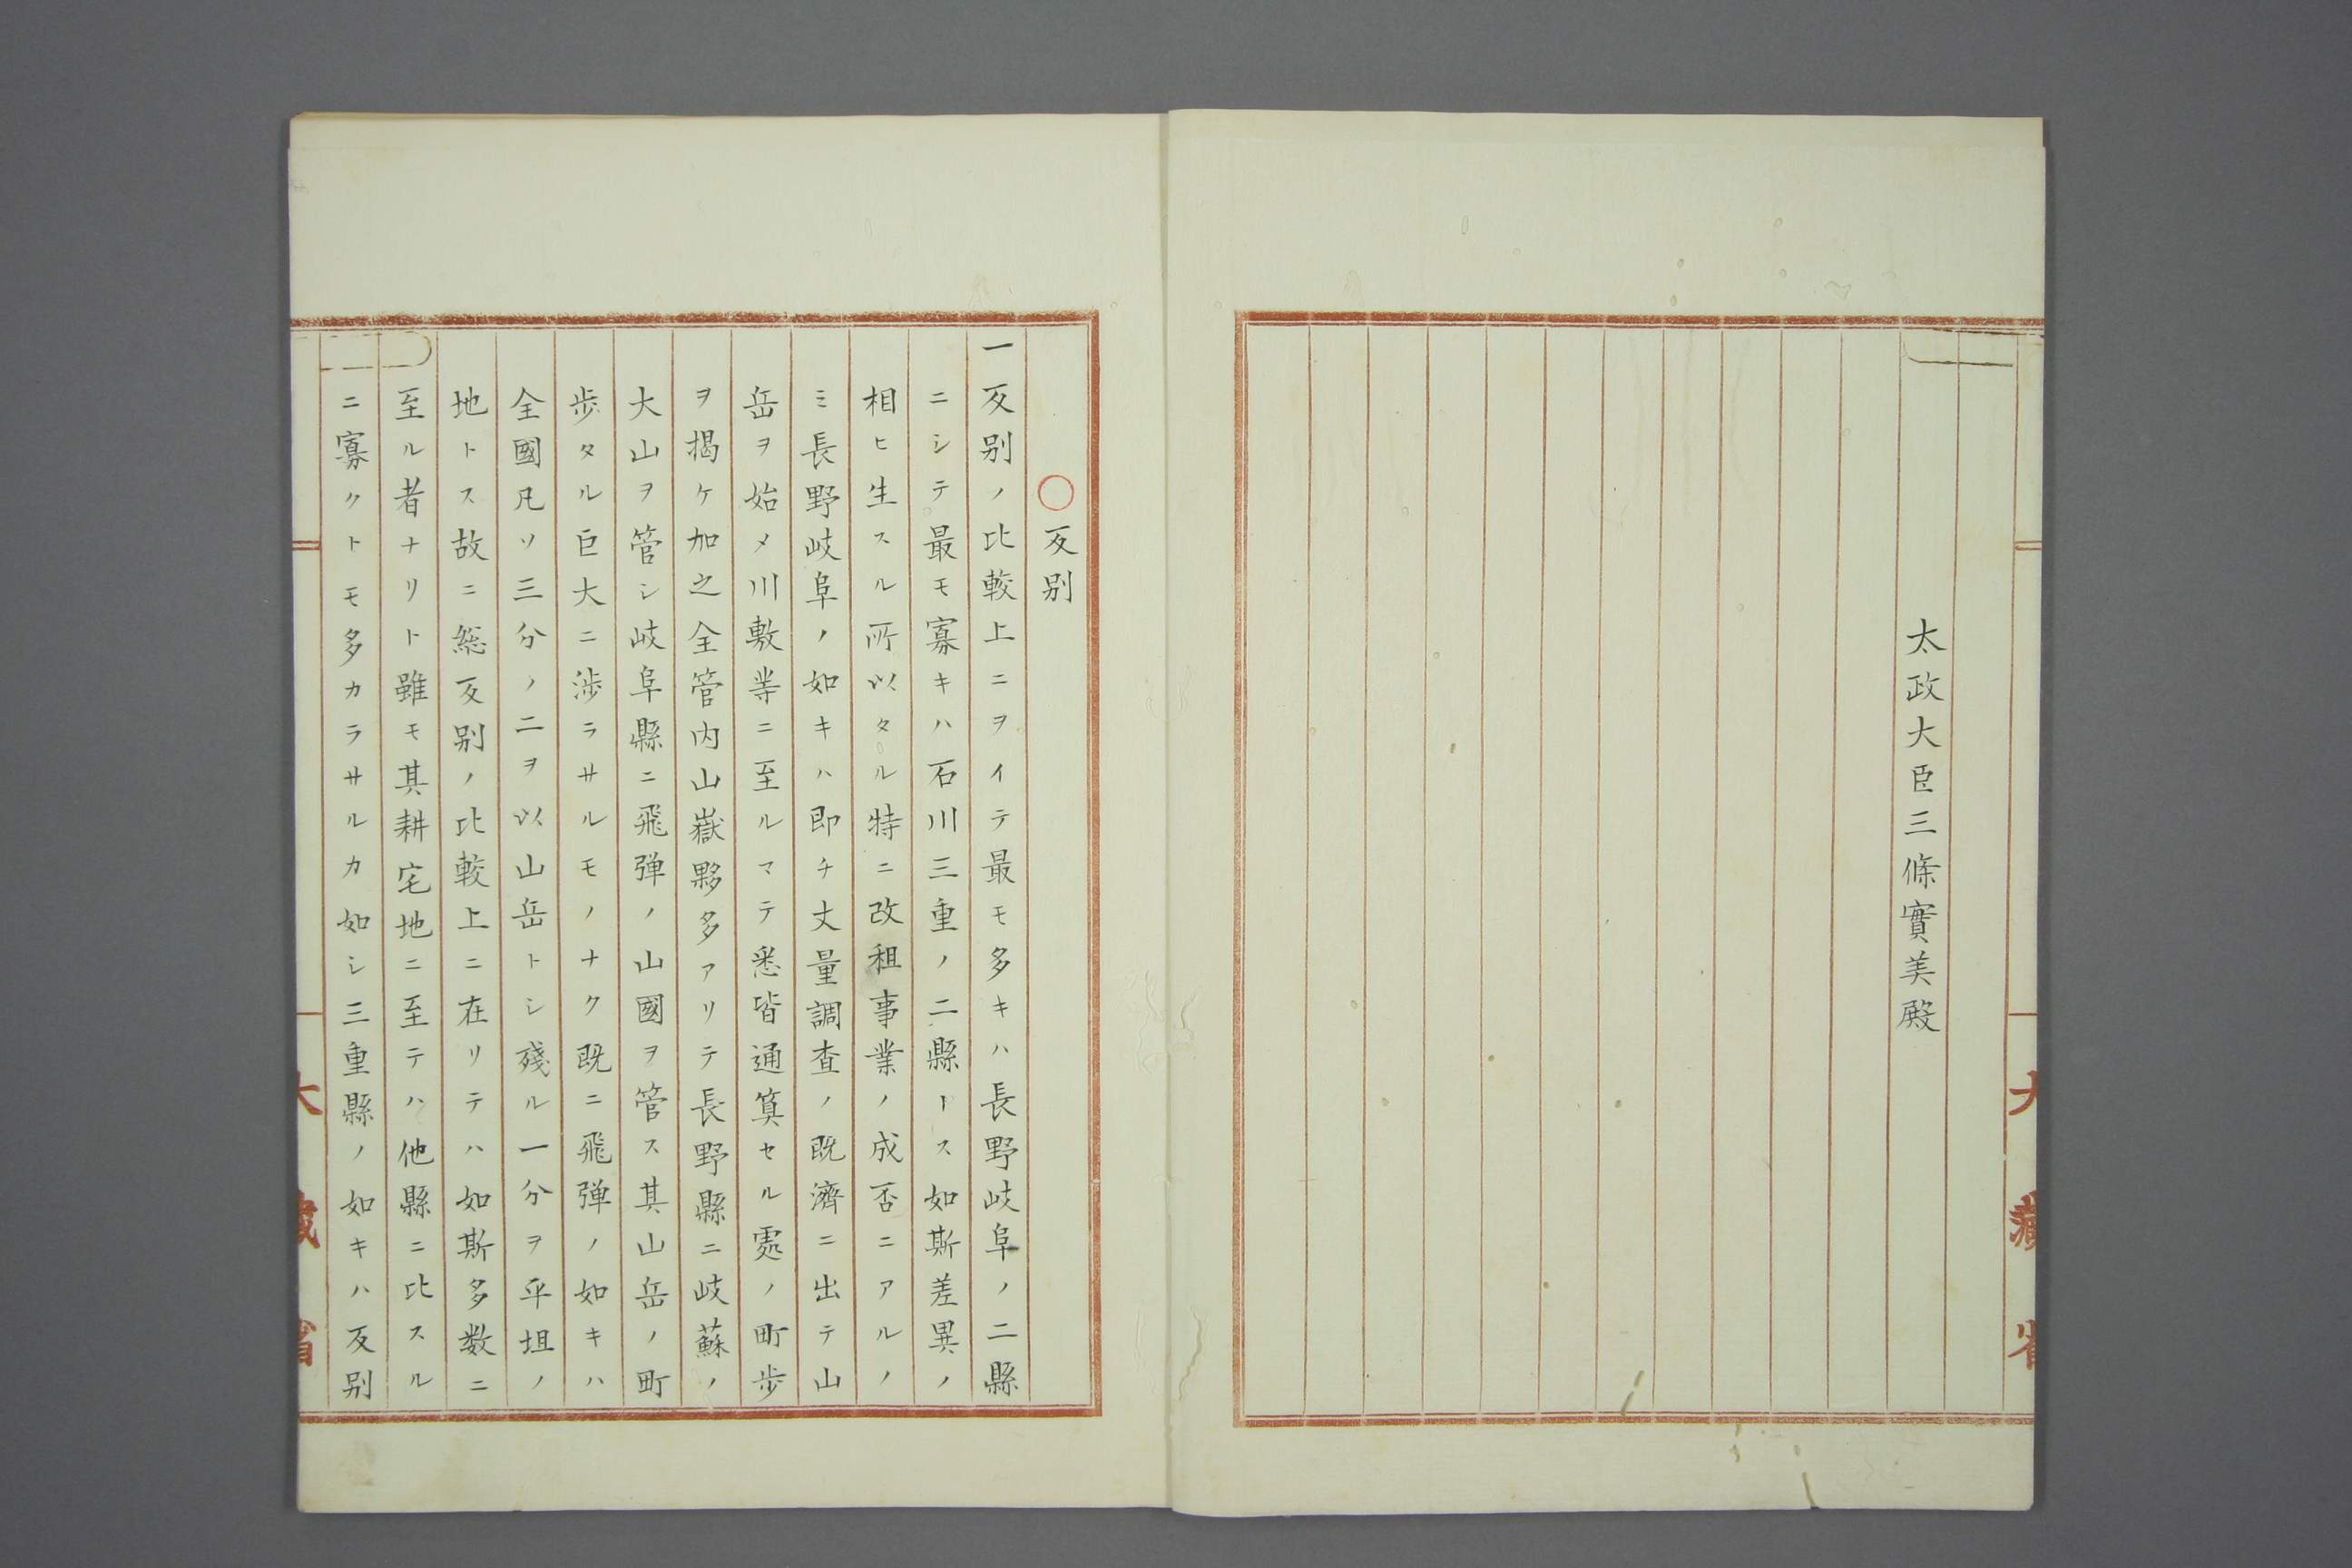 太政大臣三條實美殿
大藏省
〇反別
一反別ノ比較上ニヲイテ最モ多キハ長野岐阜ノ二縣
ニシテ最モ寡キハ石川三重ノ二縣トス如斯差異ノ
相ヒ生スル所以タル特ニ改租事業ノ成否ニアルノ
ミ長野岐阜ノ如キハ即チ丈量調査ノ既濟ニ出テ山
岳ヲ始メ川敷等ニ至ルマテ悉皆通算セル處ノ町歩
ヲ揭ケ加之全管内山嶽夥多アリテ長野縣ニ岐蘇ノ
大山ヲ管シ岐阜縣ニ飛弾ノ山國ヲ管ス其山岳ノ町
歩タル巨大ニ渉ラサルモノナク既ニ飛弾ノ如キハ
全國凡ソ三分ノ二ヲ以山岳トシ殘ル一分ヲ平坦ノ
地トス故ニ総反別ノ比較上ニ在リテハ如斯多数ニ
至ル者ナリト雖モ其耕宅地ニ至テハ他縣ニ比スル
ニ寡クトモ多カラサルカ如シ三重縣ノ如キハ反別
大藏省